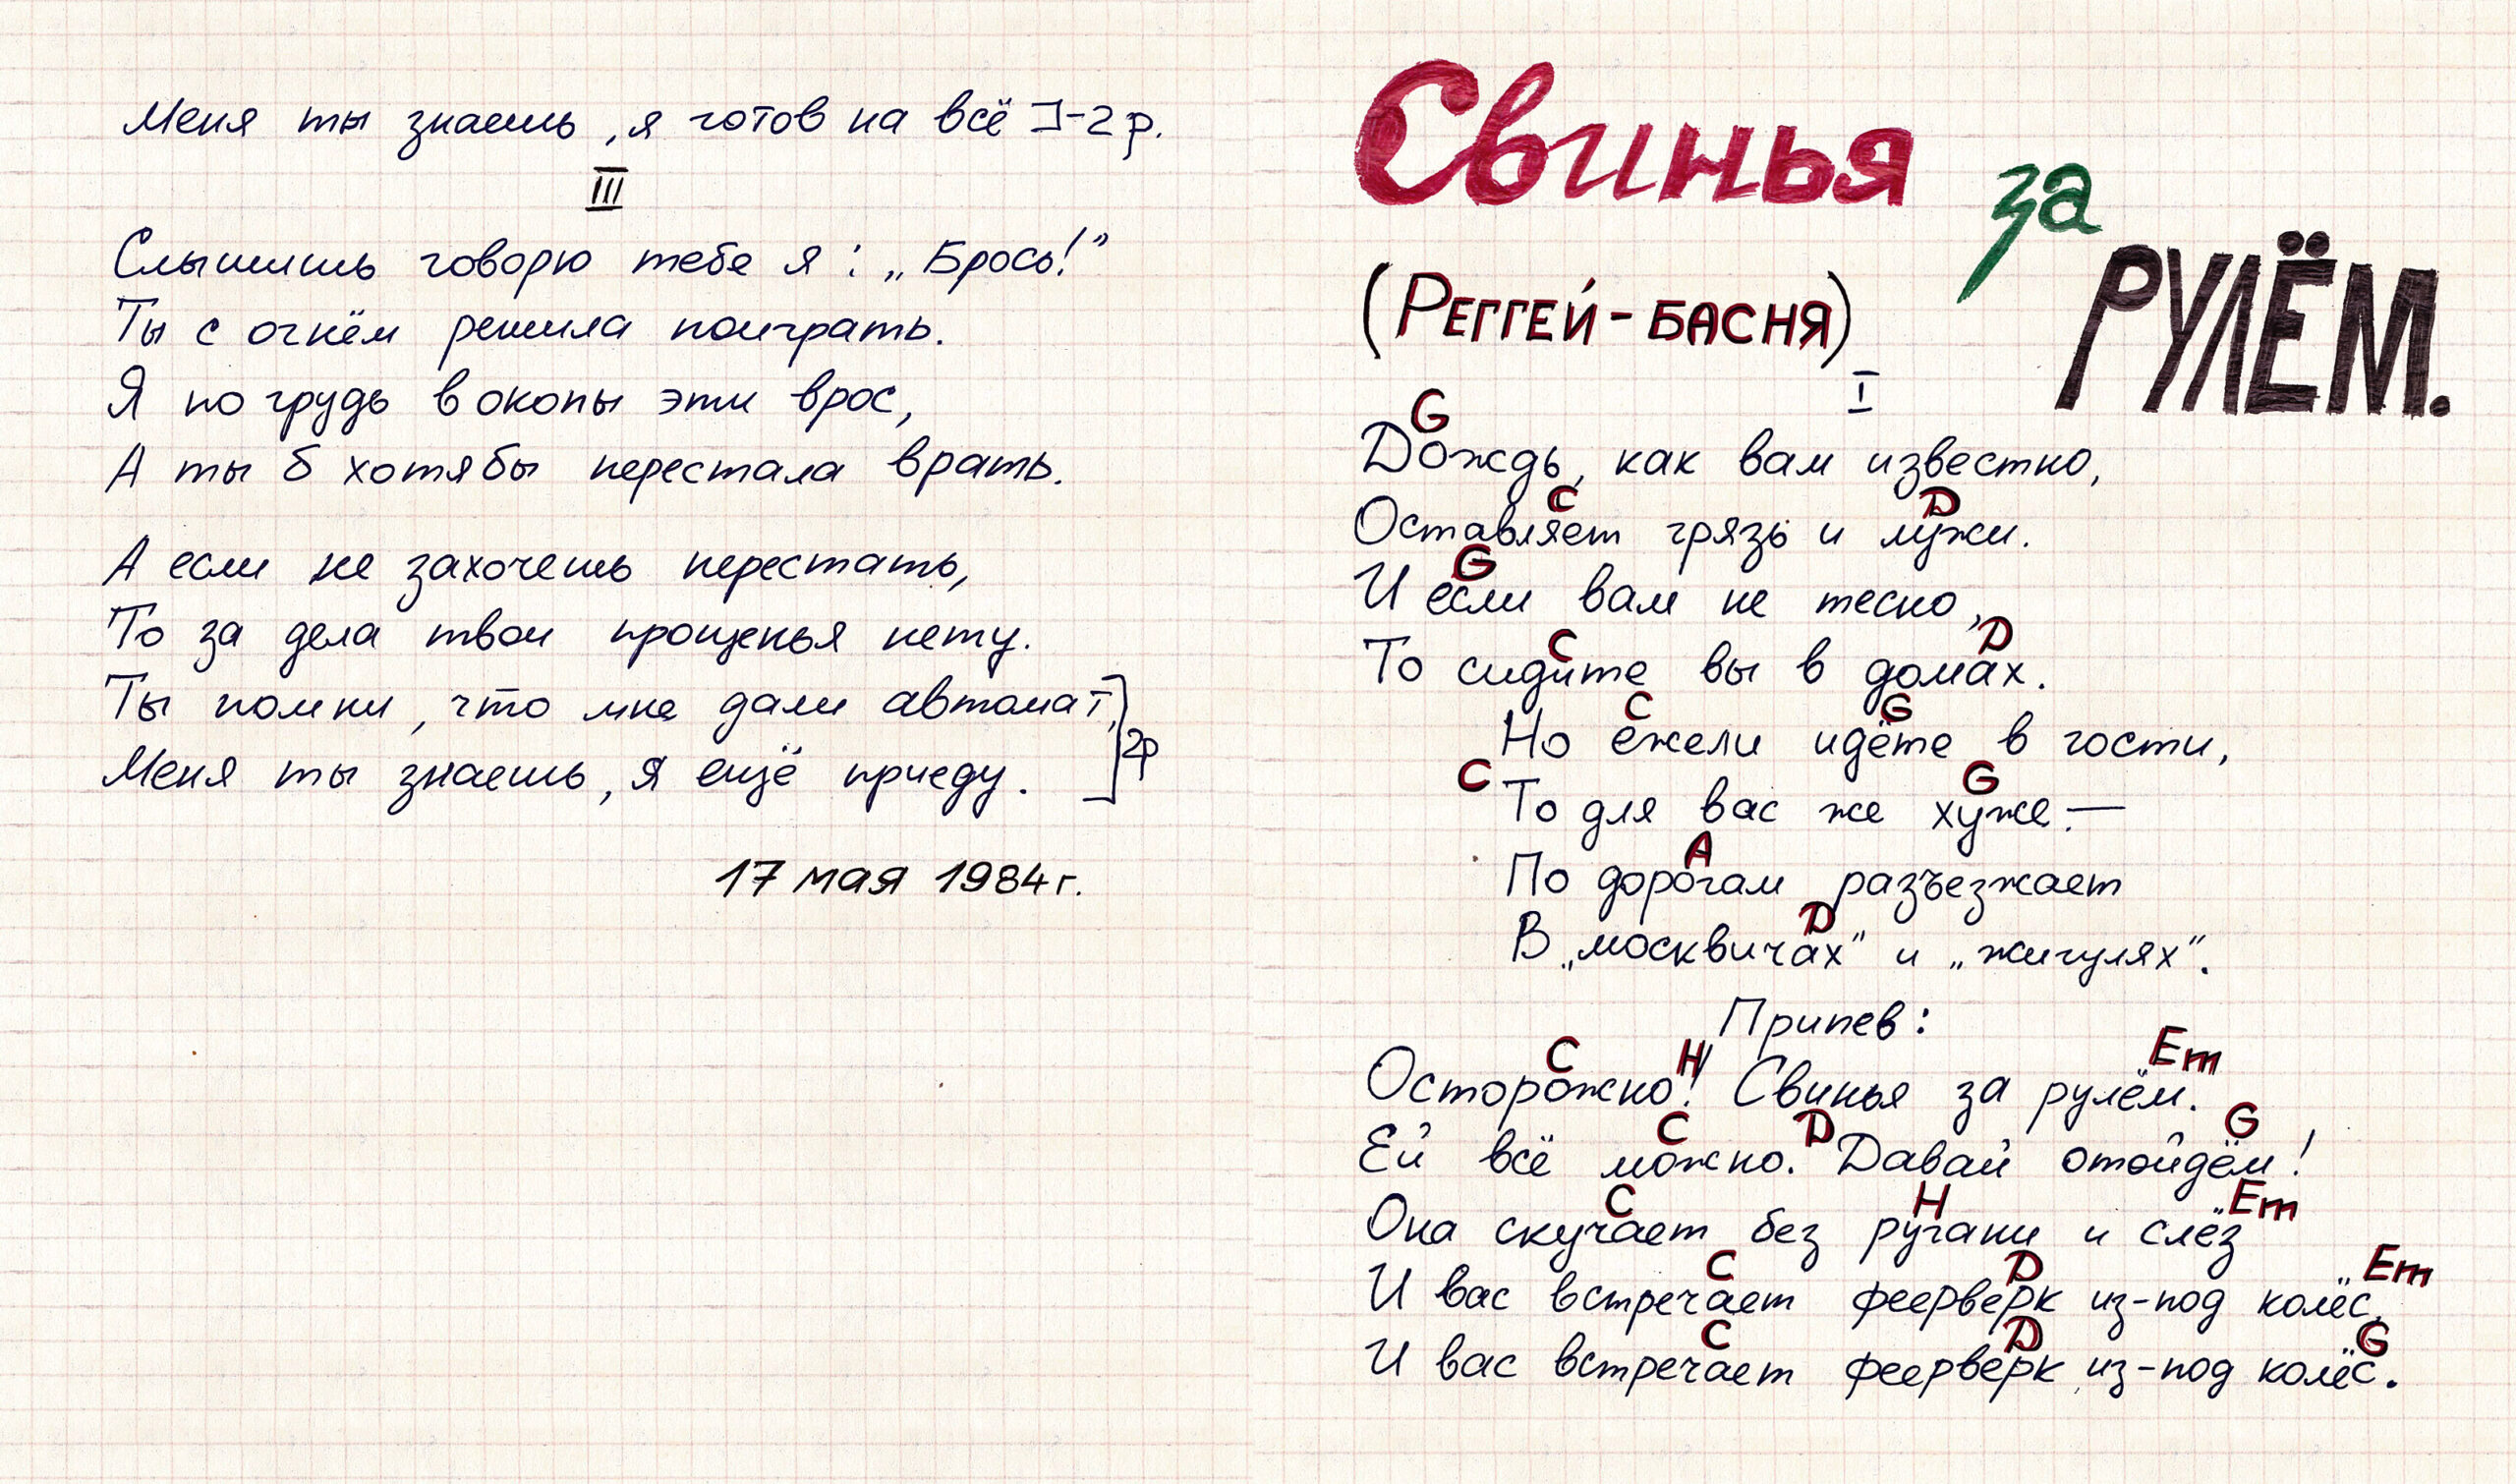 Меня ты знаешь, я готов на всё ]-2р.
III
Слышишь говорю тебе я: „Брось!”
Ты с огнём решила поиграть.
Я по грудь в окопы эти врос,
А ты б хотя бы перестала врать.
А если не захочешь перестать,
То за дела твои прощенья нету.
Ты помни, что мне дали автомат,
Меня ты знаешь, я ещё приеду. ]2р
17 мая 1984г.
Свинья
за
РУЛЁМ.
(Реггей-басня)
I
G
Дождь, как вам известно,
C D
Оставляет грязь и лужи.
G
И если вам не тесно,
C D
То сидите вы в домах.
C G
Но ежели идёте в гости,
C G
То для вас же хуже. —
A
По дорогам разъезжает
D
В „москвичах” и „жигулях”.
Припев:
C H Em
Осторожно! Свинья за рулём.
C D G
Ей всё можно. Давай отойдём!
C H Em
Она скучает без ругани и слёз
C D Em
И вас встречает феерверк из-под колёс,
C D G
И вас встречает феерверк из-под колёс.